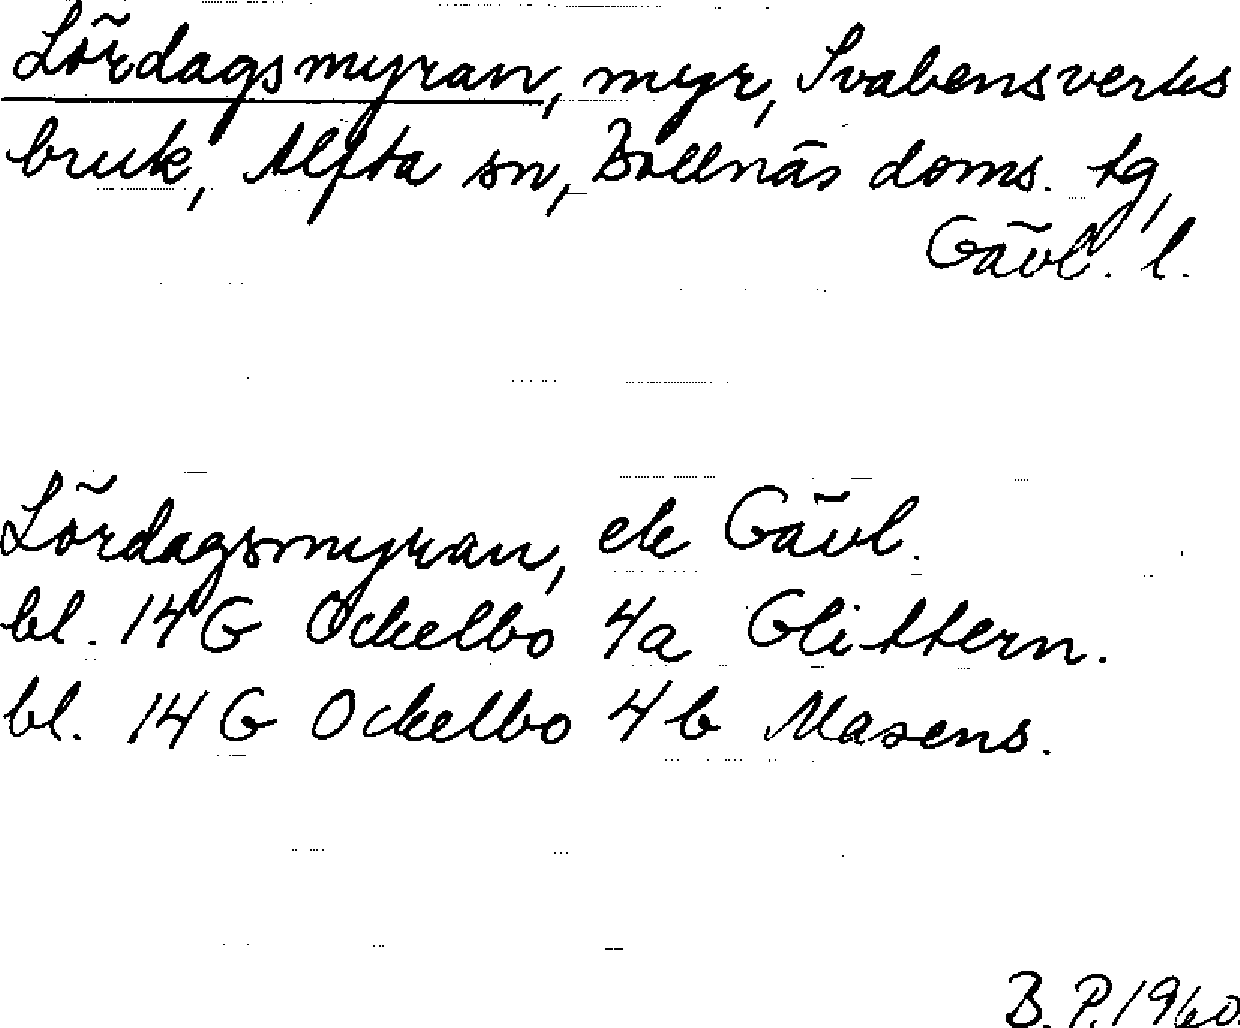 Lördagsmyran, myr, Svabensverks
bruk, Alfta sn, Bollnäs doms. tg,
Gävl. l.
Lördagsmyran, ek Gävl.
bl. 14 G Ockelbo 4a Glittern.
bl. 14 G Ockelbo 4b Masens.
B. P. 1960.